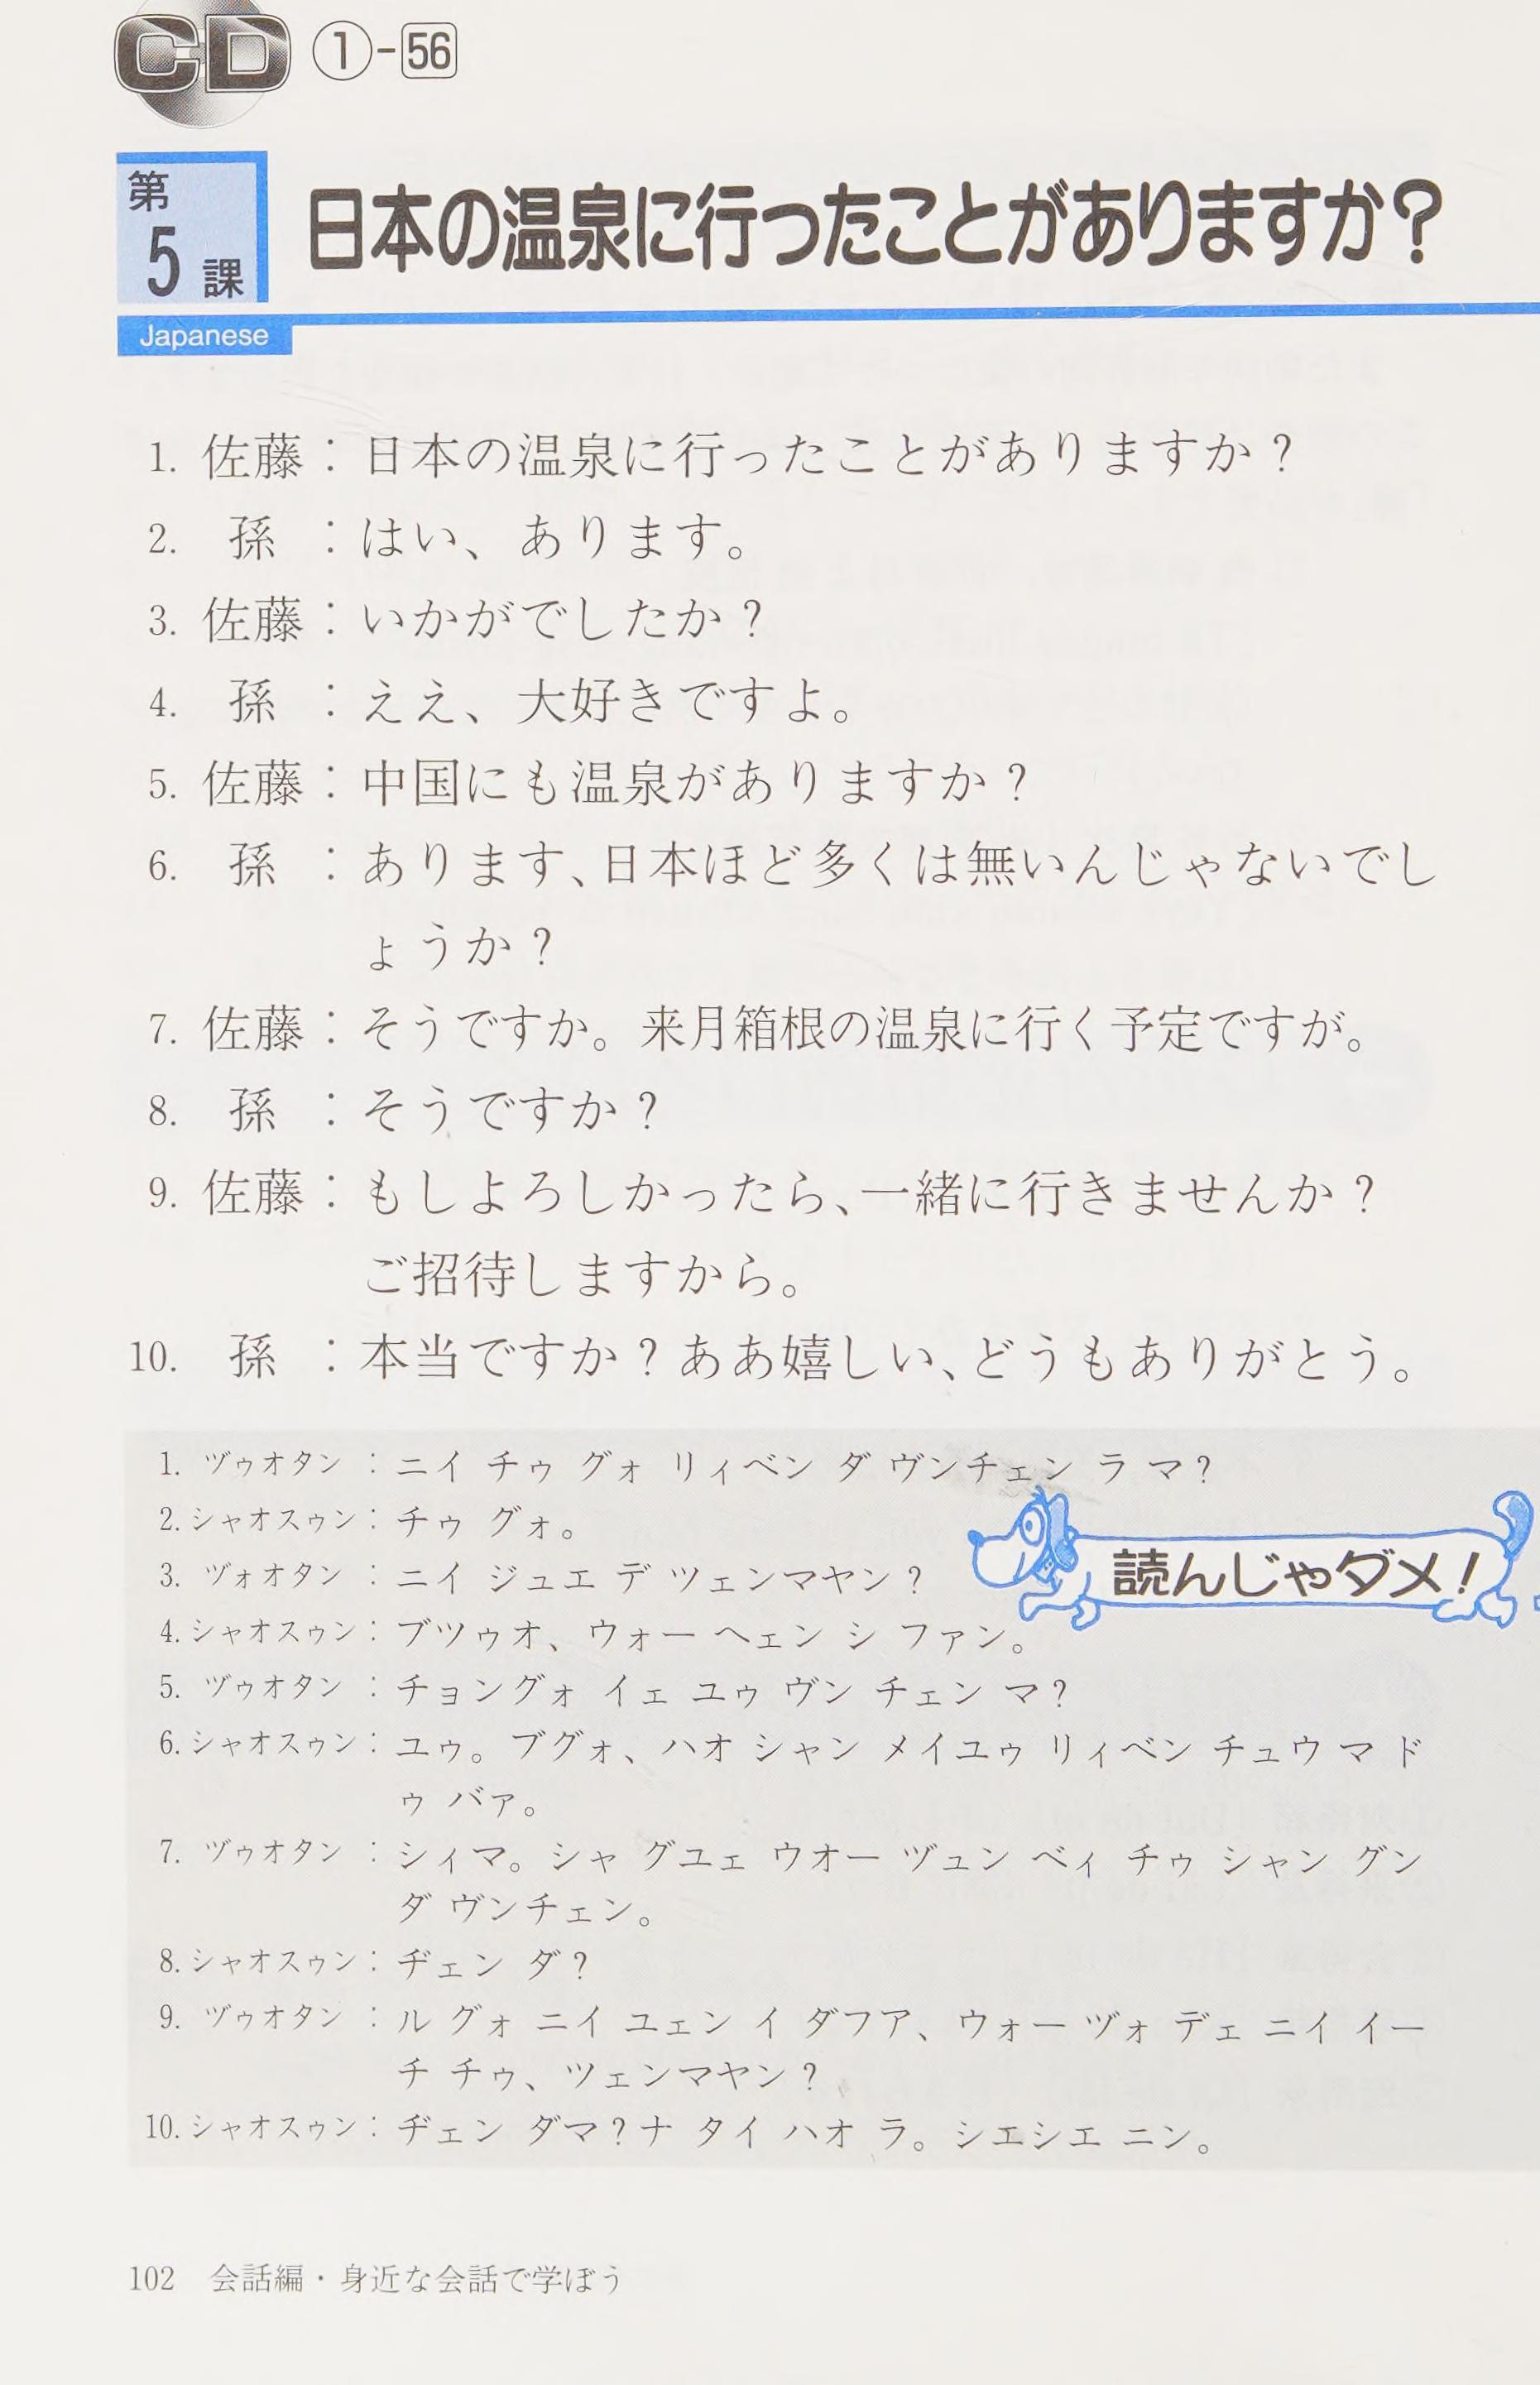 CD ①-56
第5課
日本の温泉に行ったことがありますか？
Japanese
1. 佐藤：日本の温泉に行ったことがありますか？
2. 孫：はい、あります。
3. 佐藤：いかがでしたか？
4. 孫：ええ、大好きですよ。
5. 佐藤：中国にも温泉がありますか？
6. 孫：あります、日本ほど多くは無いんじゃないでし
ょうか？
7. 佐藤：そうですか。来月箱根の温泉に行く予定ですが。
8. 孫：そうですか？
9. 佐藤：もしよろしかったら、一緒に行きませんか？
ご招待しますから。
10. 孫：本当ですか？ああ嬉しい、どうもありがとう。
1. ヅゥオタン：ニイ チゥ グォ リィベン ダ ヴンチェン ラ マ？
2. シャオスゥン：チゥ グォ。
3. ヅォオタン：ニイ ジュエ デ ツェンマヤン？
読んじゃダメ！
4. シャオスゥン：ブツゥオ、ウォー ヘェン シ ファン。
5. ヅゥオタン：チョングォ イェ ユゥ ヴン チェン マ？
6. シャオスゥン：ユゥ。ブグォ、ハオ シャン メイユゥ リィベン チュウ マ ド
ゥ バァ。
7. ヅゥオタン：シィマ。シャ グユェ ウオー ヅュン ベィ チゥ シャン グン
ダ ヴンチェン。
8. シャオスゥン：ヂェン ダ？
9. ヅゥオタン：ル グォ ニイ ユェン イ ダフア、ウォー ヅォ デェ ニイ イー
チ チゥ、ツェンマヤン？
10. シャオスゥン：ヂェン ダマ？ナ タイ ハオ ラ。シエシエ ニン。
102 会話編・身近な会話で学ぼう